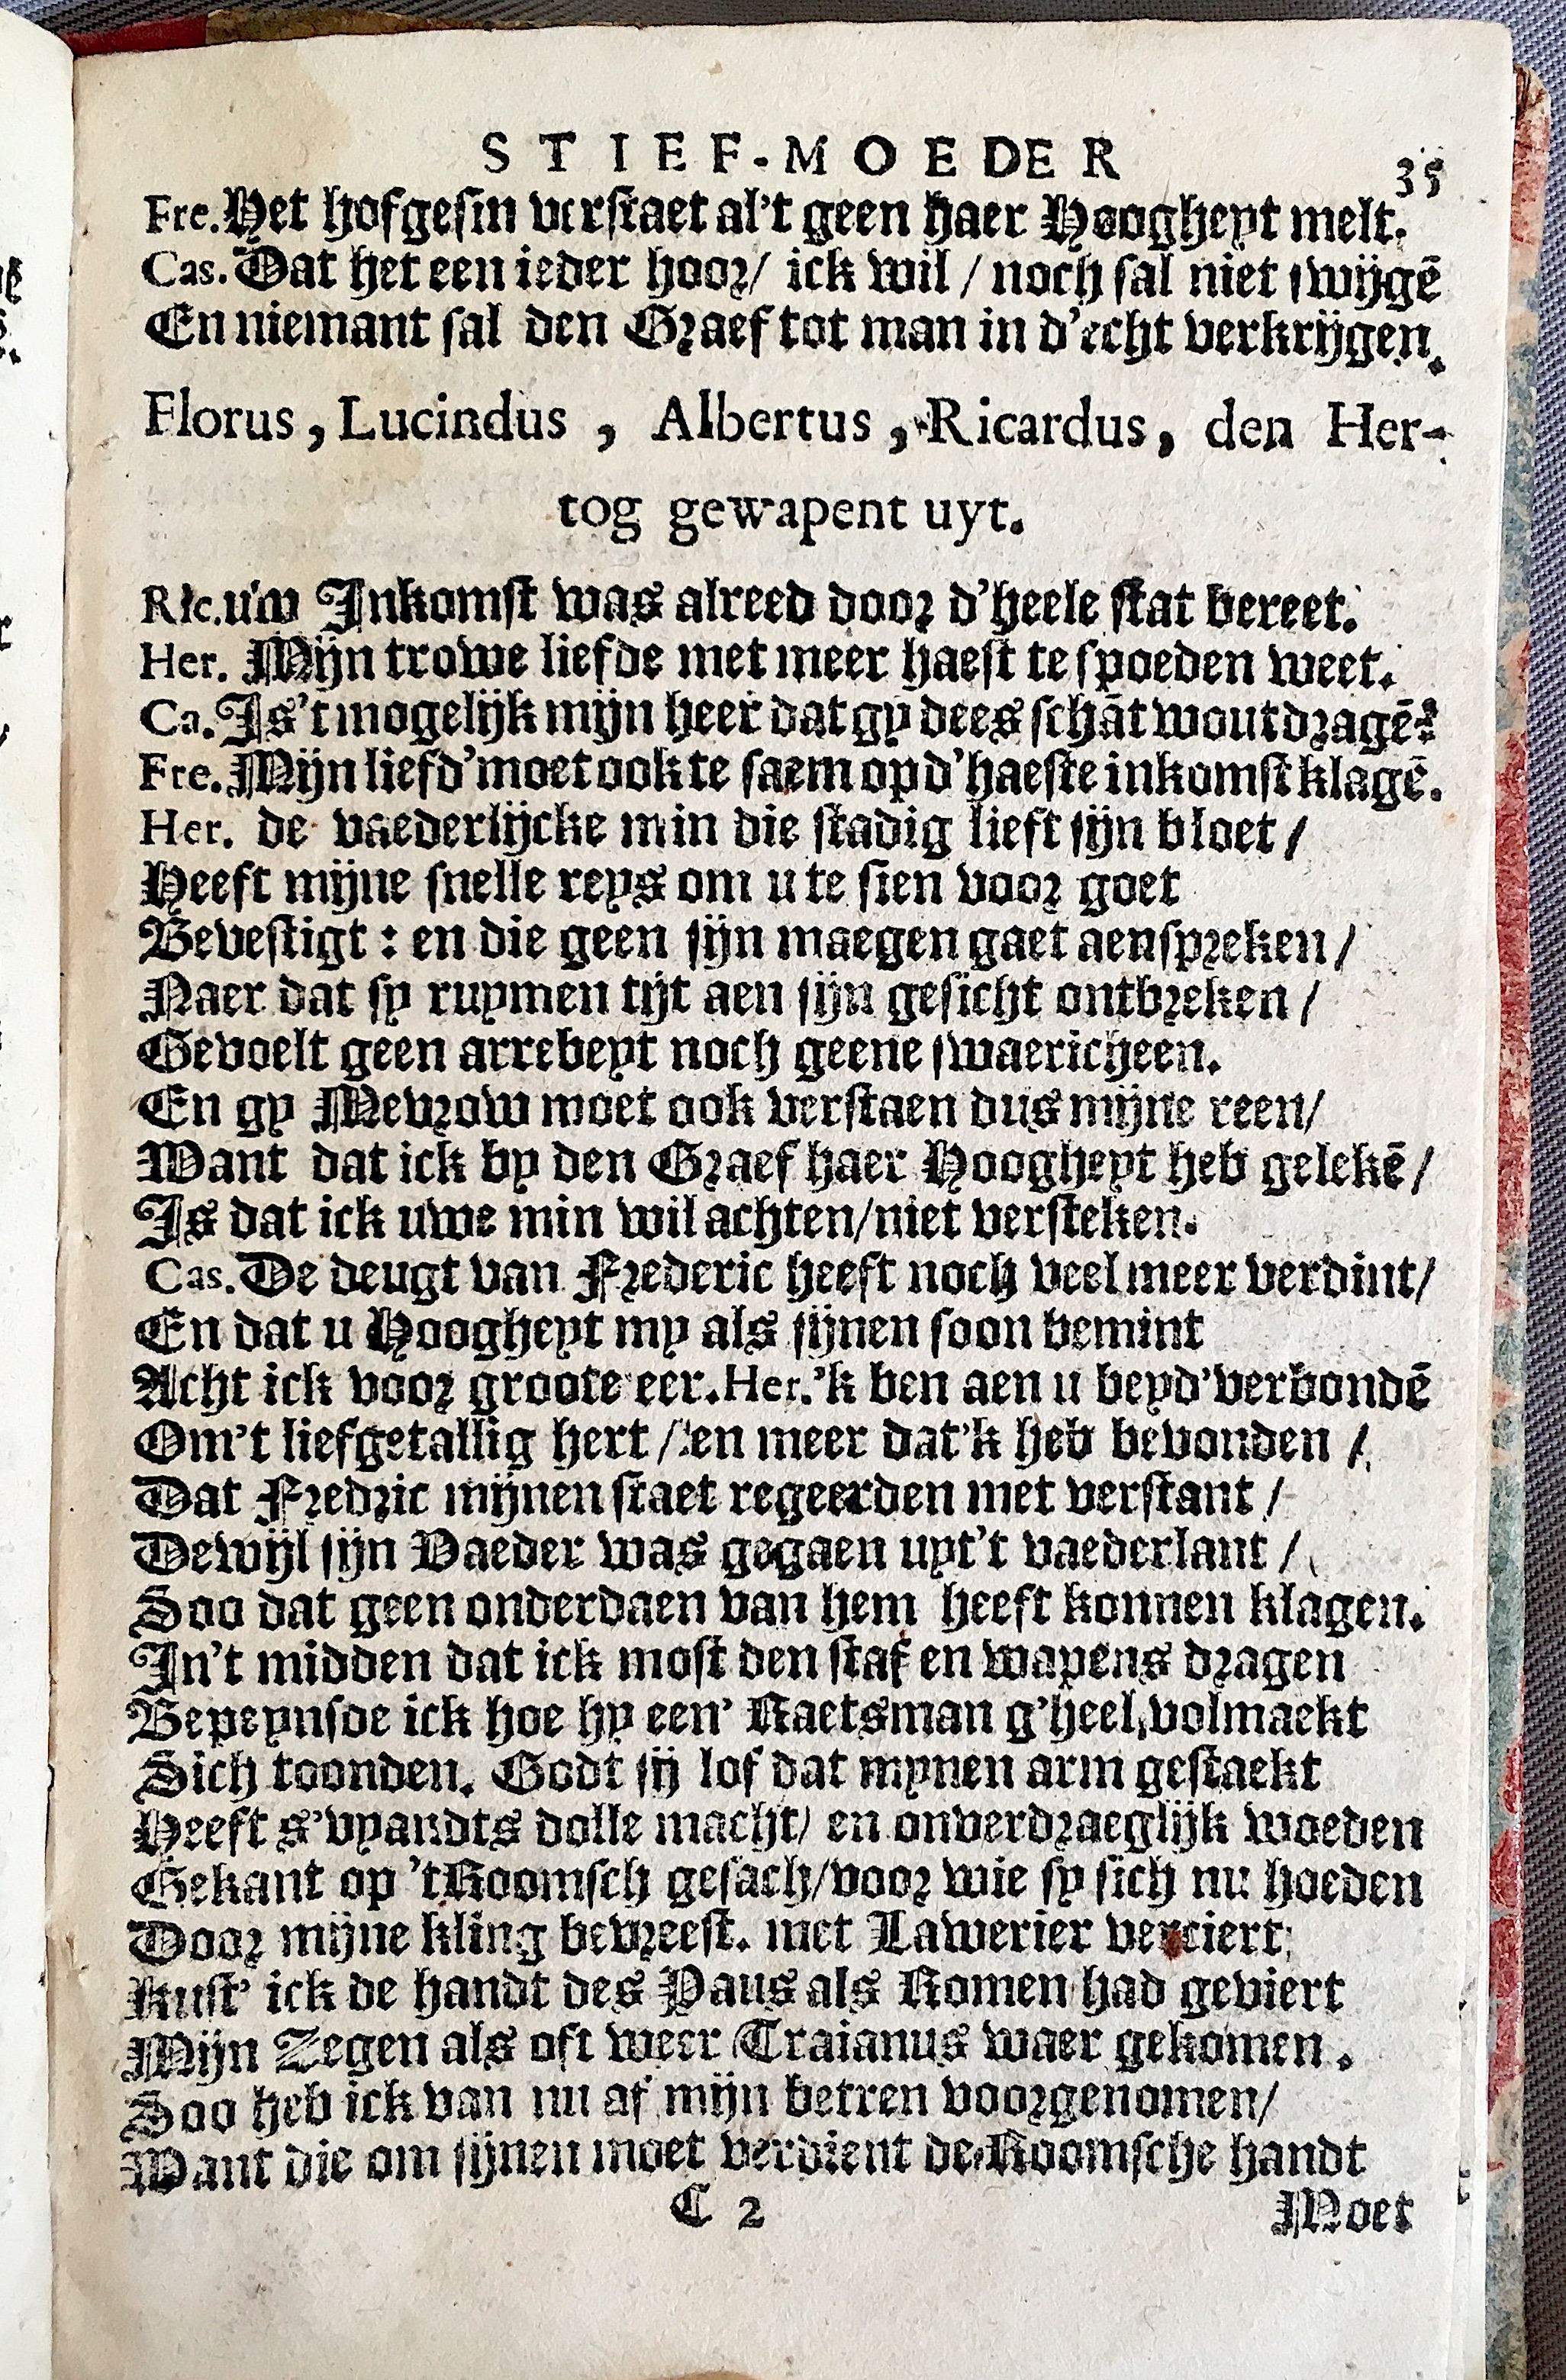 STIEF-MOEDER 35
Fre. Het hofgesin verstaet al't geen haer Hoogheyt melt.
Cas. Dat het een ieder hoor/ ick wil / noch sal niet swijgē
En niemant sal den Graef tot man in d'echt verkrijgen.
Florus, Lucindus, Albertus, Ricardus, den Her-
tog gewapent uyt.
Ric. uw Inkomst was alreed door d'heele stat bereet.
Her. Mijn trowe liefde met meer haest te spoeden weet.
Ca. Is't mogelijk mijn heer dat gy dees schāt wout dragē?
Fre. Mijn liefd' moet ook te saem op d'haeste inkomst klagē.
Her. de vaederlijcke min die stadig lieft sijn bloet /
Heeft mijne snelle reys om u te sien voor goet
Bevestigt : en die geen sijn maegen gaet aenspreken /
Naer dat sy ruymen tijt aen sijn gesicht ontbreken /
Gevoelt geen arrebeyt noch geene swaericheen.
En gy Mevrow moet ook verstaen dus mijne reen/
Want dat ick by den Graef haer Hoogheyt heb gelekē /
Is dat ick uwe min wil achten/niet versteken.
Cas. De deugt van Frederic heeft noch veel meer verdint/
En dat u Hoogheyt my als sijnen soon bemint
Acht ick voor groote eer. Her. 'k ben aen u beyd' verbondē
Om't liefgetallig hert / en meer dat'k heb bevonden /
Dat Fredric mijnen staet regeerden met verstant /
Dewijl sijn Vaeder was gegaen uyt't vaederlant /
Soo dat geen onderdaen van hem heeft konnen klagen.
In't midden dat ick most den staf en wapens dragen
Bepeynsde ick hoe hy een' Raetsman g'heel, volmaekt
Sich toonden. Godt sij lof dat mynen arm gestaekt
Heeft s'vyandts dolle macht/ en onverdraeglijk woeden
Gekant op 't Roomsch gesach/voor wie sy sich nu hoeden
Door mijne kling bevreest. met Lawerier verciert;
Kust' ick de handt des Paus als Romen had geviert
Mijn Zegen als oft weer Traianus waer gekomen.
Soo heb ick van nu af mijn betren voorgenomen/
Want die om sijnen moet verdient de Roomsche handt
C 2 Moet